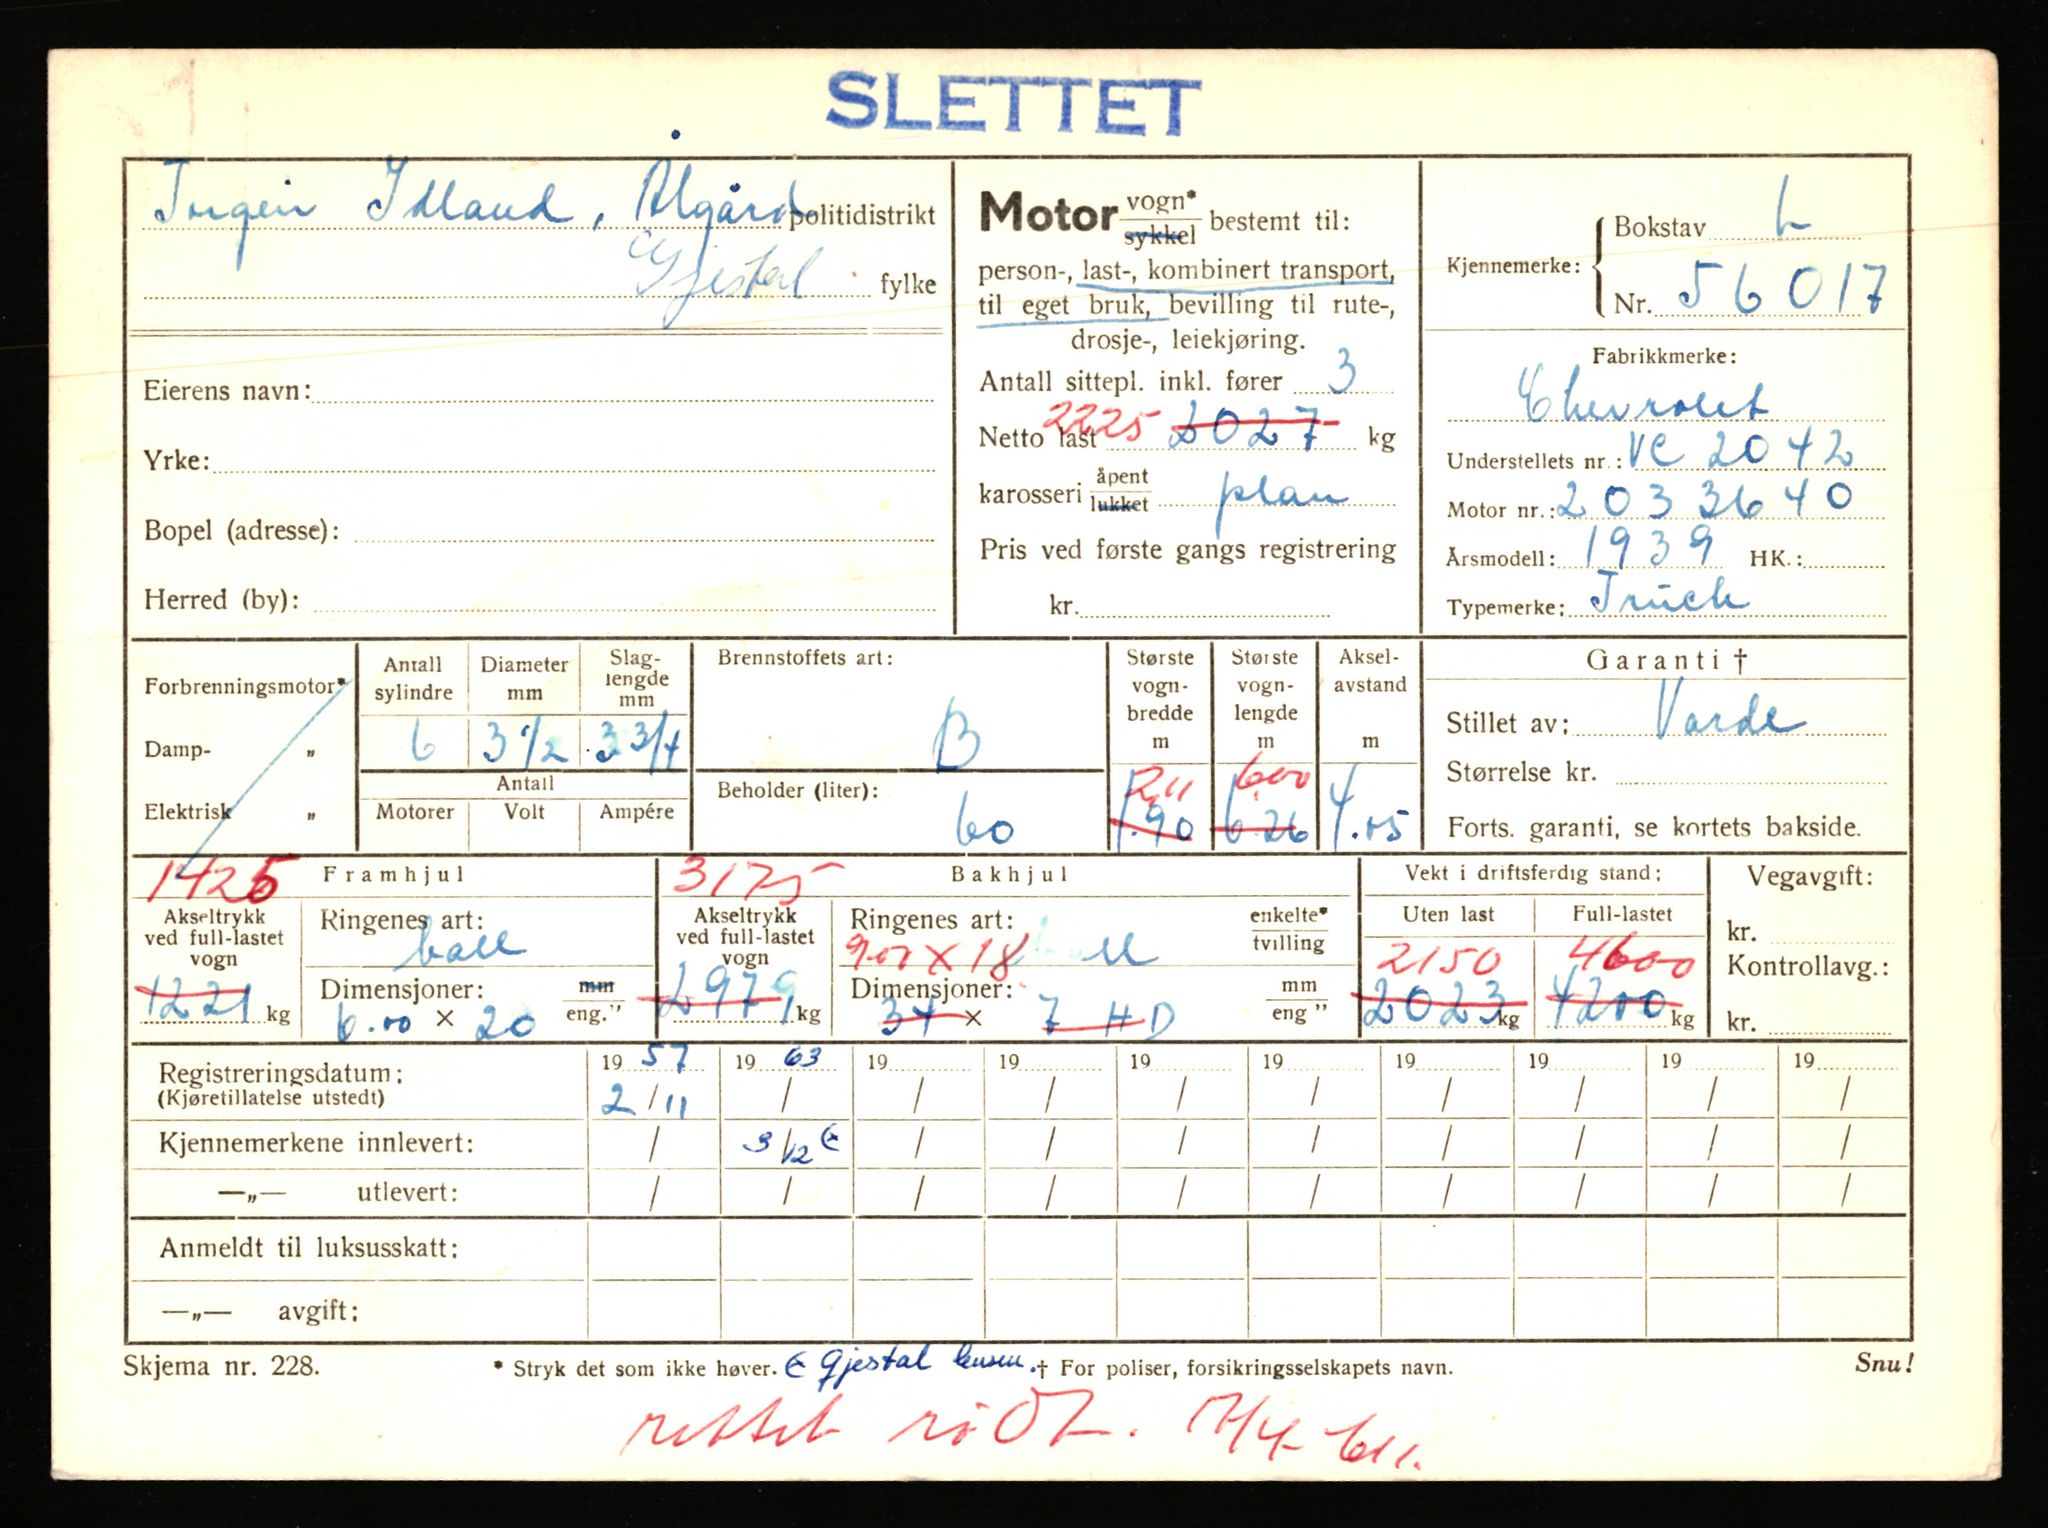 SLETTET
Jørgen Idland, Ålgård politidistrikt
Gjestal fylke
Eierens navn:
Yrke:
Bopel (adresse):
Herred (by):
Motor vogn* sykkel bestemt til:
person-, last-, kombinert transport,
til eget bruk, bevilling til rute-,
drosje-, leiekjøring.
Antall sittepl. inkl. fører 3
Netto last 2225 2027 kg
karosseri åpent lukket plan
Pris ved første gangs registrering
kr.
Kjennemerke: Bokstav L
Nr. 56017
Fabrikkmerke:
Chevrolet
Understellets nr.: VC 2042
Motor nr.: 2033640
Årsmodell: 1939 HK.:
Typemerke: Truck
Forbrenningsmotor*
Damp- „
Elektrisk „
Antall sylindre Diameter mm Slag-lengde mm
6 3 1/2 3 3/4
Antall
Motorer Volt Ampére
Brennstoffets art:
B
Beholder (liter):
60
Største vogn-bredde m
2,11
1.90
Største vogn-lengde m
6,00
6.26
Aksel-avstand m
4.05
Garanti †
Stillet av: Varde
Størrelse kr.
Forts. garanti, se kortets bakside.
1425 Framhjul
Akseltrykk ved full-lastet vogn
1221 kg
Ringenes art:
ball
Dimensjoner: mm eng.”
6.00 × 20
3175 Bakhjul
Akseltrykk ved full-lastet vogn
2979 kg
Ringenes art: enkelte* tvilling
9.00 × 18 ball
Dimensjoner: mm eng”
34 × 7 HD
Vekt i driftsferdig stand:
Uten last Full-lastet
2150 4600
2023 kg 4200 kg
Vegavgift:
kr.
Kontrollavg.:
kr.
Registreringsdatum: 19 57 19 63 19 19 19 19 19 19 19 19
(Kjøretillatelse utstedt) 2/11 / / / / / / / / /
Kjennemerkene innlevert: / 3/12 € / / / / / / / /
—„— utlevert: / / / / / / / / / /
Anmeldt til luksusskatt:
—„— avgift:
Skjema nr. 228. * Stryk det som ikke høver. € Gjestal lensm. † For poliser, forsikringsselskapets navn. Snu!
rettet rødt. 17/4-61.